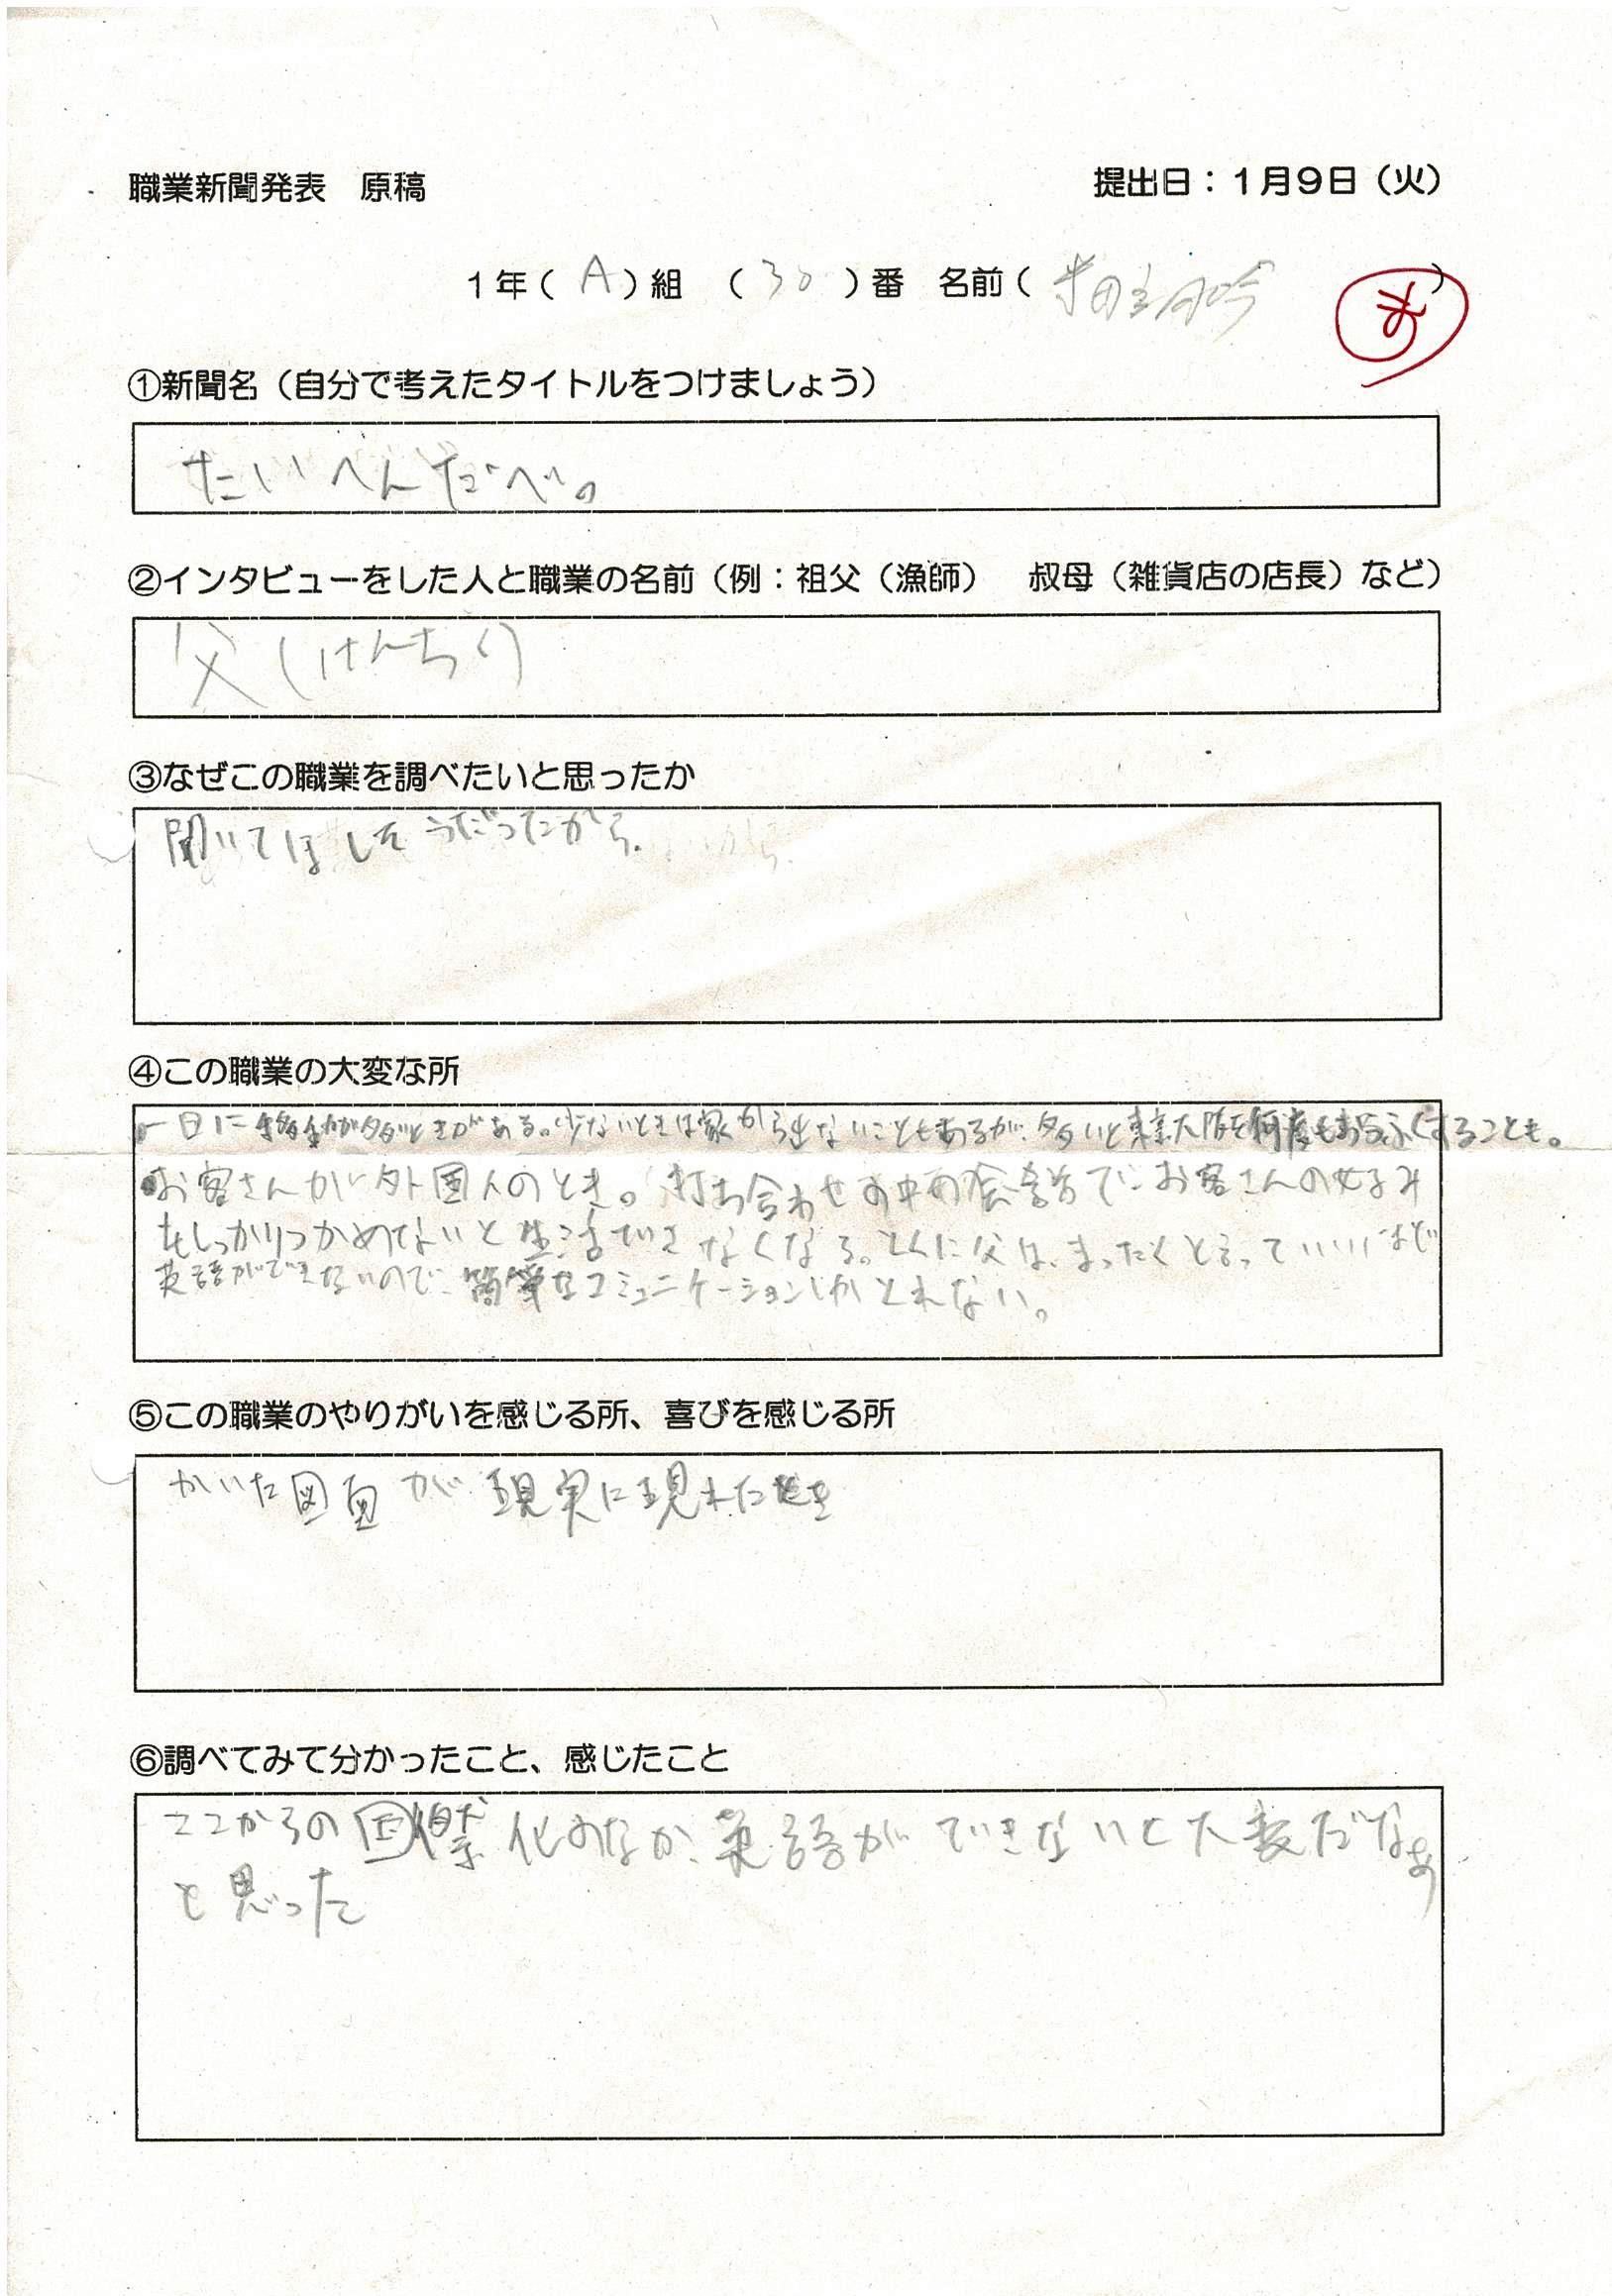 職業新聞発表　原稿
提出日：1月9日（火）
1年（A）組　（30）番　名前（　）
①新聞名（自分で考えたタイトルをつけましょう）
たいへんだべ。
②インタビューをした人と職業の名前（例：祖父（漁師）　叔母（雑貨店の店長）など）
父（けんちく）
③なぜこの職業を調べたいと思ったか
聞いてほしそうだったから.
④この職業の大変な所
・一日に移動が多いときがある。少ないときは家から出ないこともあるが、多いと東京大阪を何度もおうふくすることも。
・お客さんが外国人のとき。打ち合わせの中の会話でお客さんの好み
をしっかりつかめてないと生活できなくなる。とくに父は、まったくと言っていいほど
英語ができないので、簡単なコミュニケーションしかとれない。
⑤この職業のやりがいを感じる所、喜びを感じる所
かいた図面が現実に現れたとき
⑥調べてみて分かったこと、感じたこと
ここからの国際化のなか、英語ができないと大変だなあ
と思った